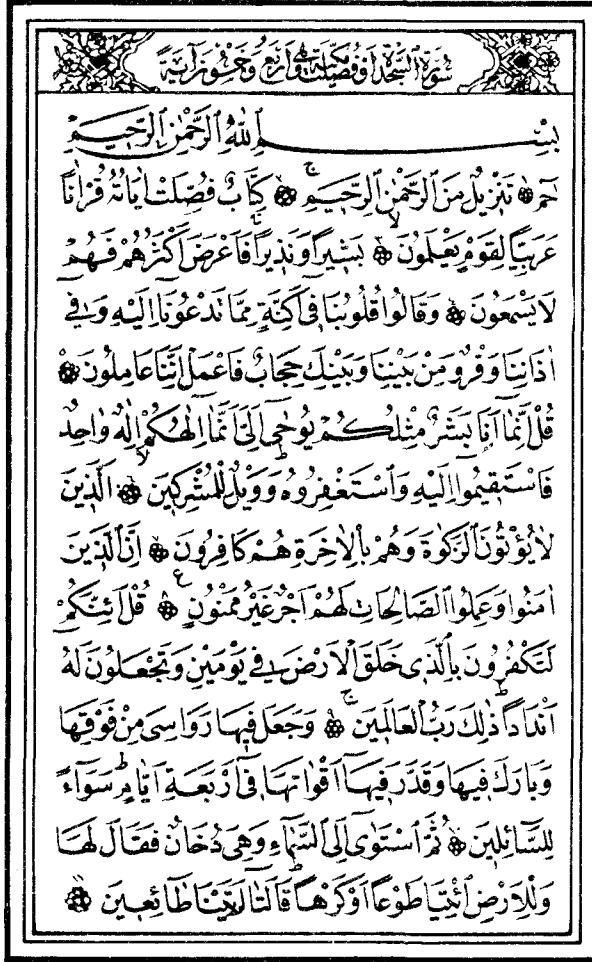 سُورَةُ السَّجْدَةِ وَفُصِّلَتْ مَكِّيَّةٌ وَهِيَ اَرْبَعٌ وَخَمْسُونَ اٰيَةً
بِسْمِ اللّٰهِ الرَّحْمٰنِ الرَّحِيمِ
حٰمٓ ۞ تَنْزِيلٌ مِنَ الرَّحْمٰنِ الرَّحِيمِ ۞ كِتَابٌ فُصِّلَتْ اٰيَاتُهُ قُرْاٰنًا
عَرَبِيًّا لِقَوْمٍ يَعْلَمُونَ ۞ بَشِيرًا وَنَذِيرًا فَاَعْرَضَ اَكْثَرُهُمْ فَهُمْ
لَا يَسْمَعُونَ ۞ وَقَالُوا قُلُوبُنَا فِٓى اَكِنَّةٍ مِمَّا تَدْعُونَٓا اِلَيْهِ وَفِٓى
اٰذَانِنَا وَقْرٌ وَمِنْ بَيْنِنَا وَبَيْنِكَ حِجَابٌ فَاعْمَلْ اِنَّنَا عَامِلُونَ ۞
قُلْ اِنَّمَٓا اَنَا۬ بَشَرٌ مِثْلُكُمْ يُوحٰٓى اِلَىَّ اَنَّمَٓا اِلٰهُكُمْ اِلٰهٌ وَاحِدٌ
فَاسْتَقِيمُٓوا اِلَيْهِ وَاسْتَغْفِرُوهُ وَوَيْلٌ لِلْمُشْرِكِينَ ۞ اَلَّذِينَ
لَا يُؤْتُونَ الزَّكٰوةَ وَهُمْ بِالْاٰخِرَةِ هُمْ كَافِرُونَ ۞ اِنَّ الَّذِينَ
اٰمَنُوا وَعَمِلُوا الصَّالِحَاتِ لَهُمْ اَجْرٌ غَيْرُ مَمْنُونٍ ۞ قُلْ اَئِنَّكُمْ
لَتَكْفُرُونَ بِالَّذِى خَلَقَ الْاَرْضَ فِى يَوْمَيْنِ وَتَجْعَلُونَ لَهُٓ
اَنْدَادًا ذٰلِكَ رَبُّ الْعَالَمِينَ ۞ وَجَعَلَ فِيهَا رَوَاسِىَ مِنْ فَوْقِهَا
وَبَارَكَ فِيهَا وَقَدَّرَ فِيهَٓا اَقْوَاتَهَا فِٓى اَرْبَعَةِ اَيَّامٍ سَوَٓاءً
لِلسَّٓائِلِينَ ۞ ثُمَّ اسْتَوٰٓى اِلَى السَّمَٓاءِ وَهِىَ دُخَانٌ فَقَالَ لَهَا
وَلِلْاَرْضِ ائْتِيَا طَوْعًا اَوْ كَرْهًا قَالَتَٓا اَتَيْنَا طَٓائِعِينَ ۞